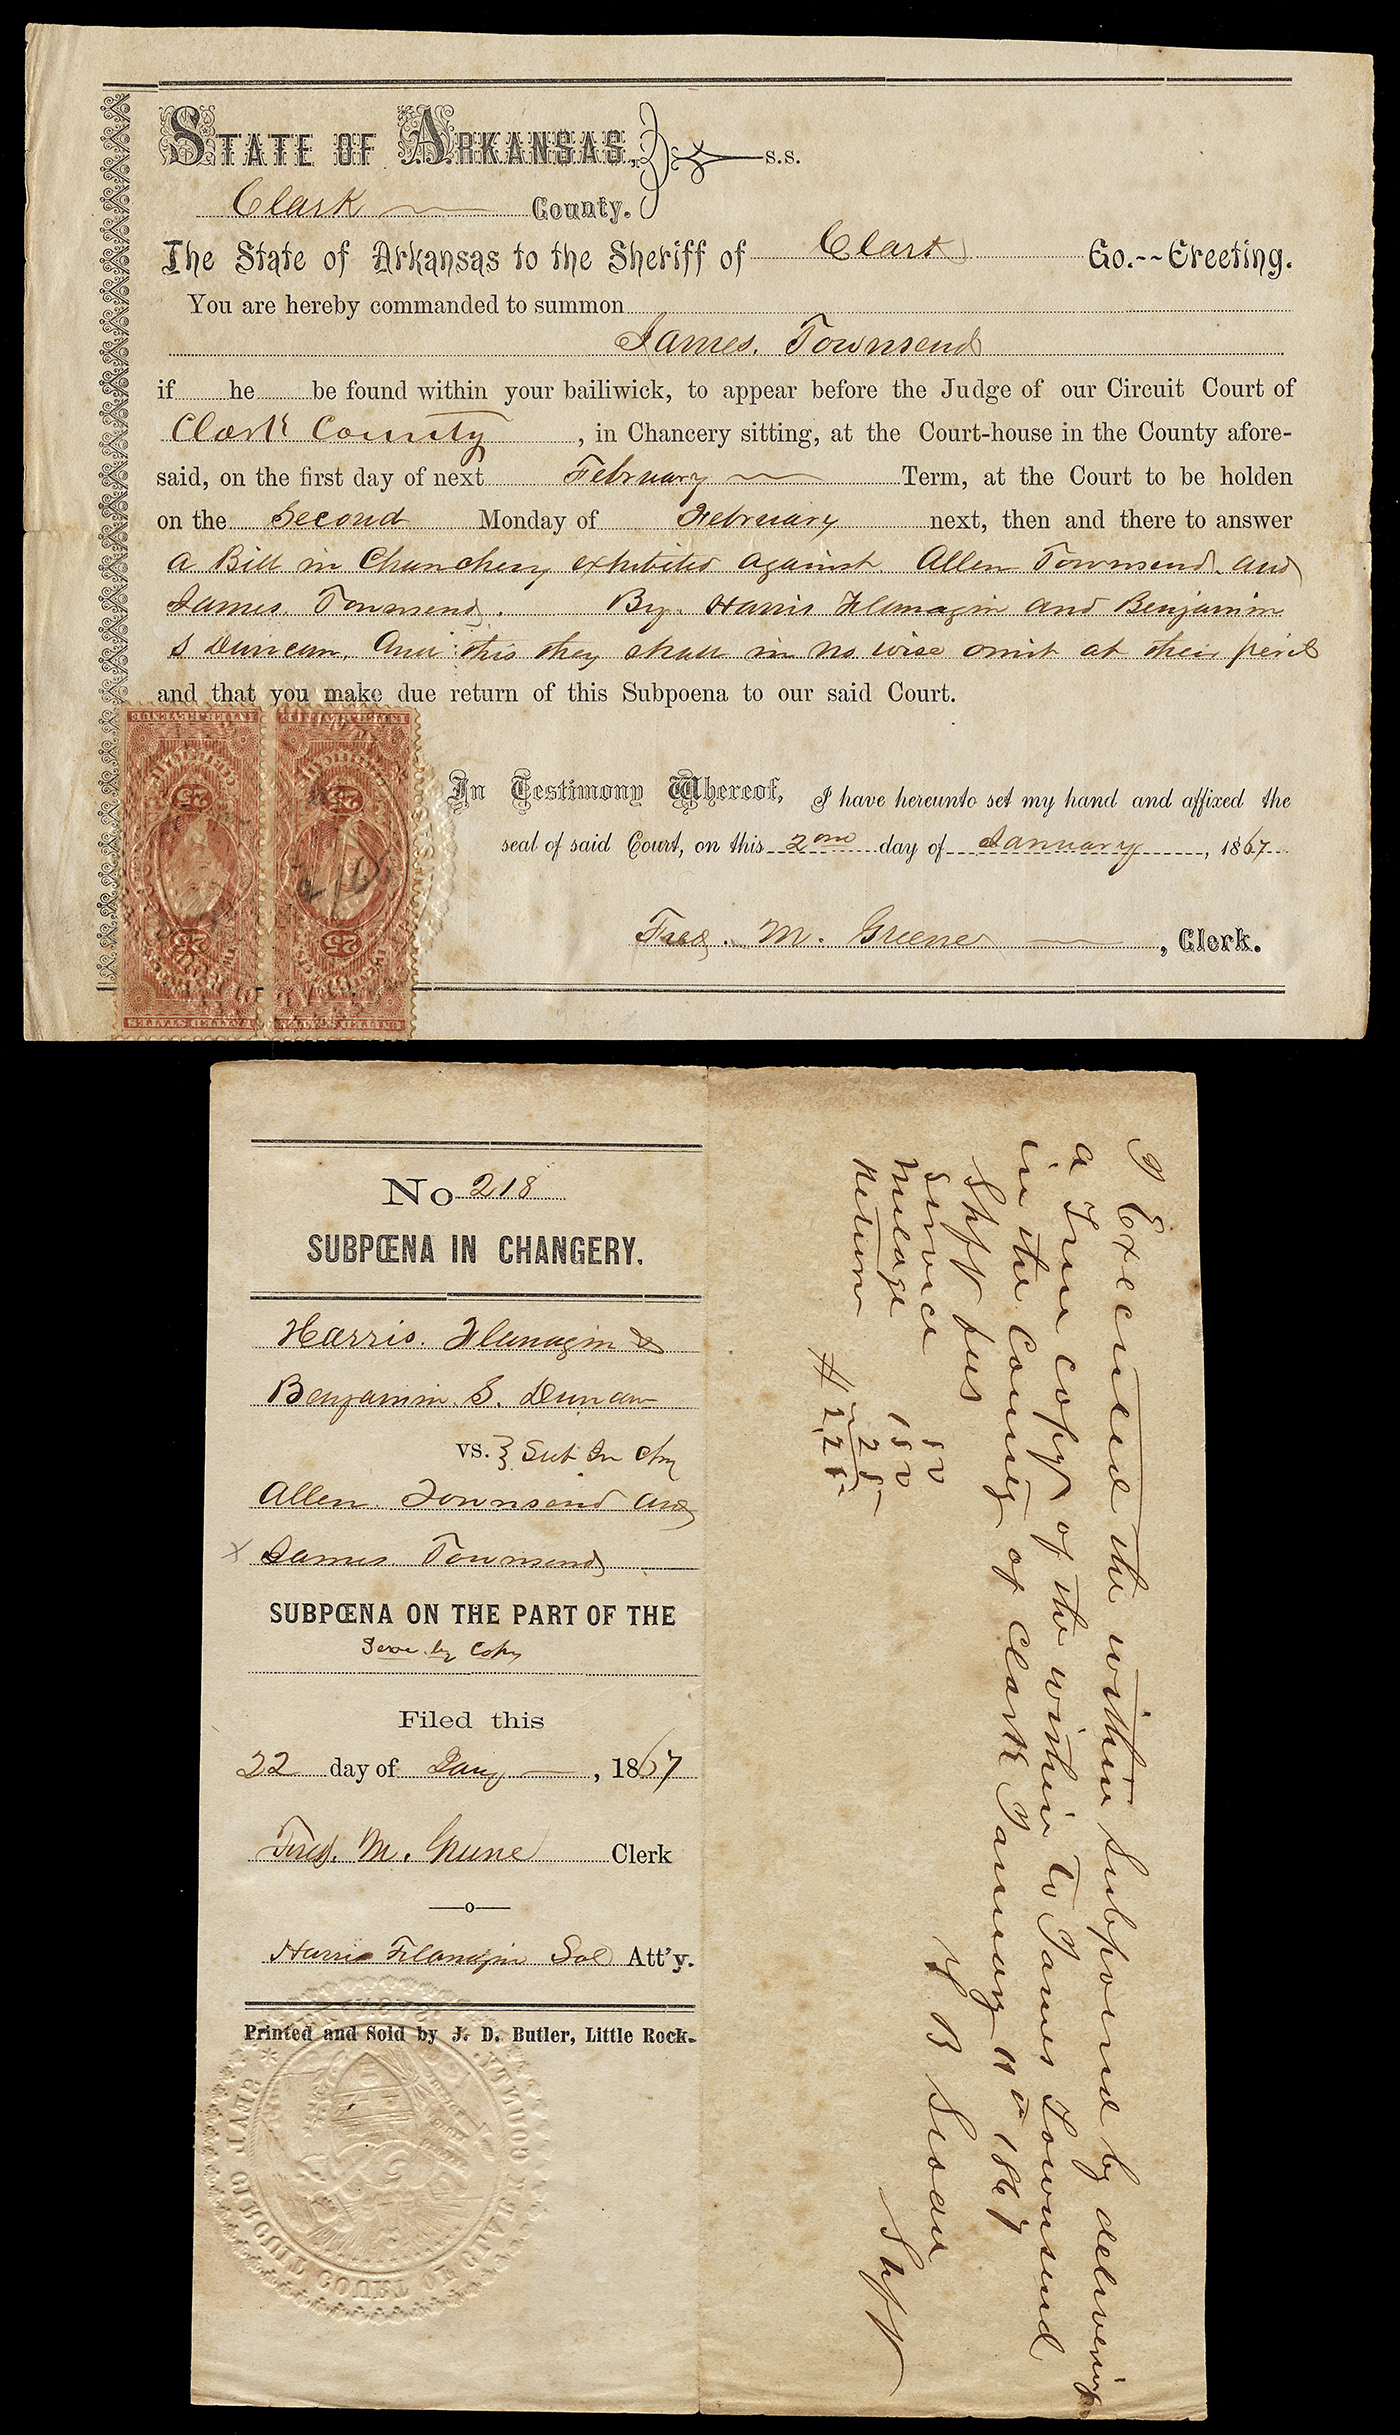 STATE OF ARKANSAS, S.S.
Clark County.
The State of Arkansas to the Sheriff of Clark Co.--Greeting.
You are hereby commanded to summon
James. Townsend
if he be found within your bailiwick, to appear before the Judge of our Circuit Court of
Clark County, in Chancery sitting, at the Court-house in the County afore-
said, on the first day of next February Term, at the Court to be holden
on the Second Monday of February next, then and there to answer
a Bill in Chanchery exhibited against Allen Townsend and
James Townsend. By Harris Flanagin and Benjamin
S Duncan. And this they shall in no wise omit at their peril
and that you make due return of this Subpoena to our said Court.
In Testimony Whereof, I have hereunto set my hand and affixed the
seal of said Court, on this 2nd day of January, 1867
Fred. M. Greene, Clerk.
INTER. REVENUE INTER. REVENUE
25 25
25 25
UNITED STATES UNITED STATES
No 218
SUBPŒNA IN CHANGERY.
Harris. Flanagin &
Benjamin. S. Duncan
vs. } Sub In Chy
Allen Townsend and
x James Townsend
SUBPŒNA ON THE PART OF THE
Serve by Copy
Filed this
22 day of Jany, 1867
Fred. M. Greene Clerk
—o—
Harris Flanagin Sol Att'y.
Printed and Sold by J. D. Butler, Little Rock-
SEAL CIRCUIT COURT OF CLARK COUNTY
I Executed the within Subpoena by delivering
a True copy of the within to James Townsend
in the County of Clark January 1867
Shff fees
Service 50
Mileage 150
Return 25
$ 2.25
B Sloan
Shff